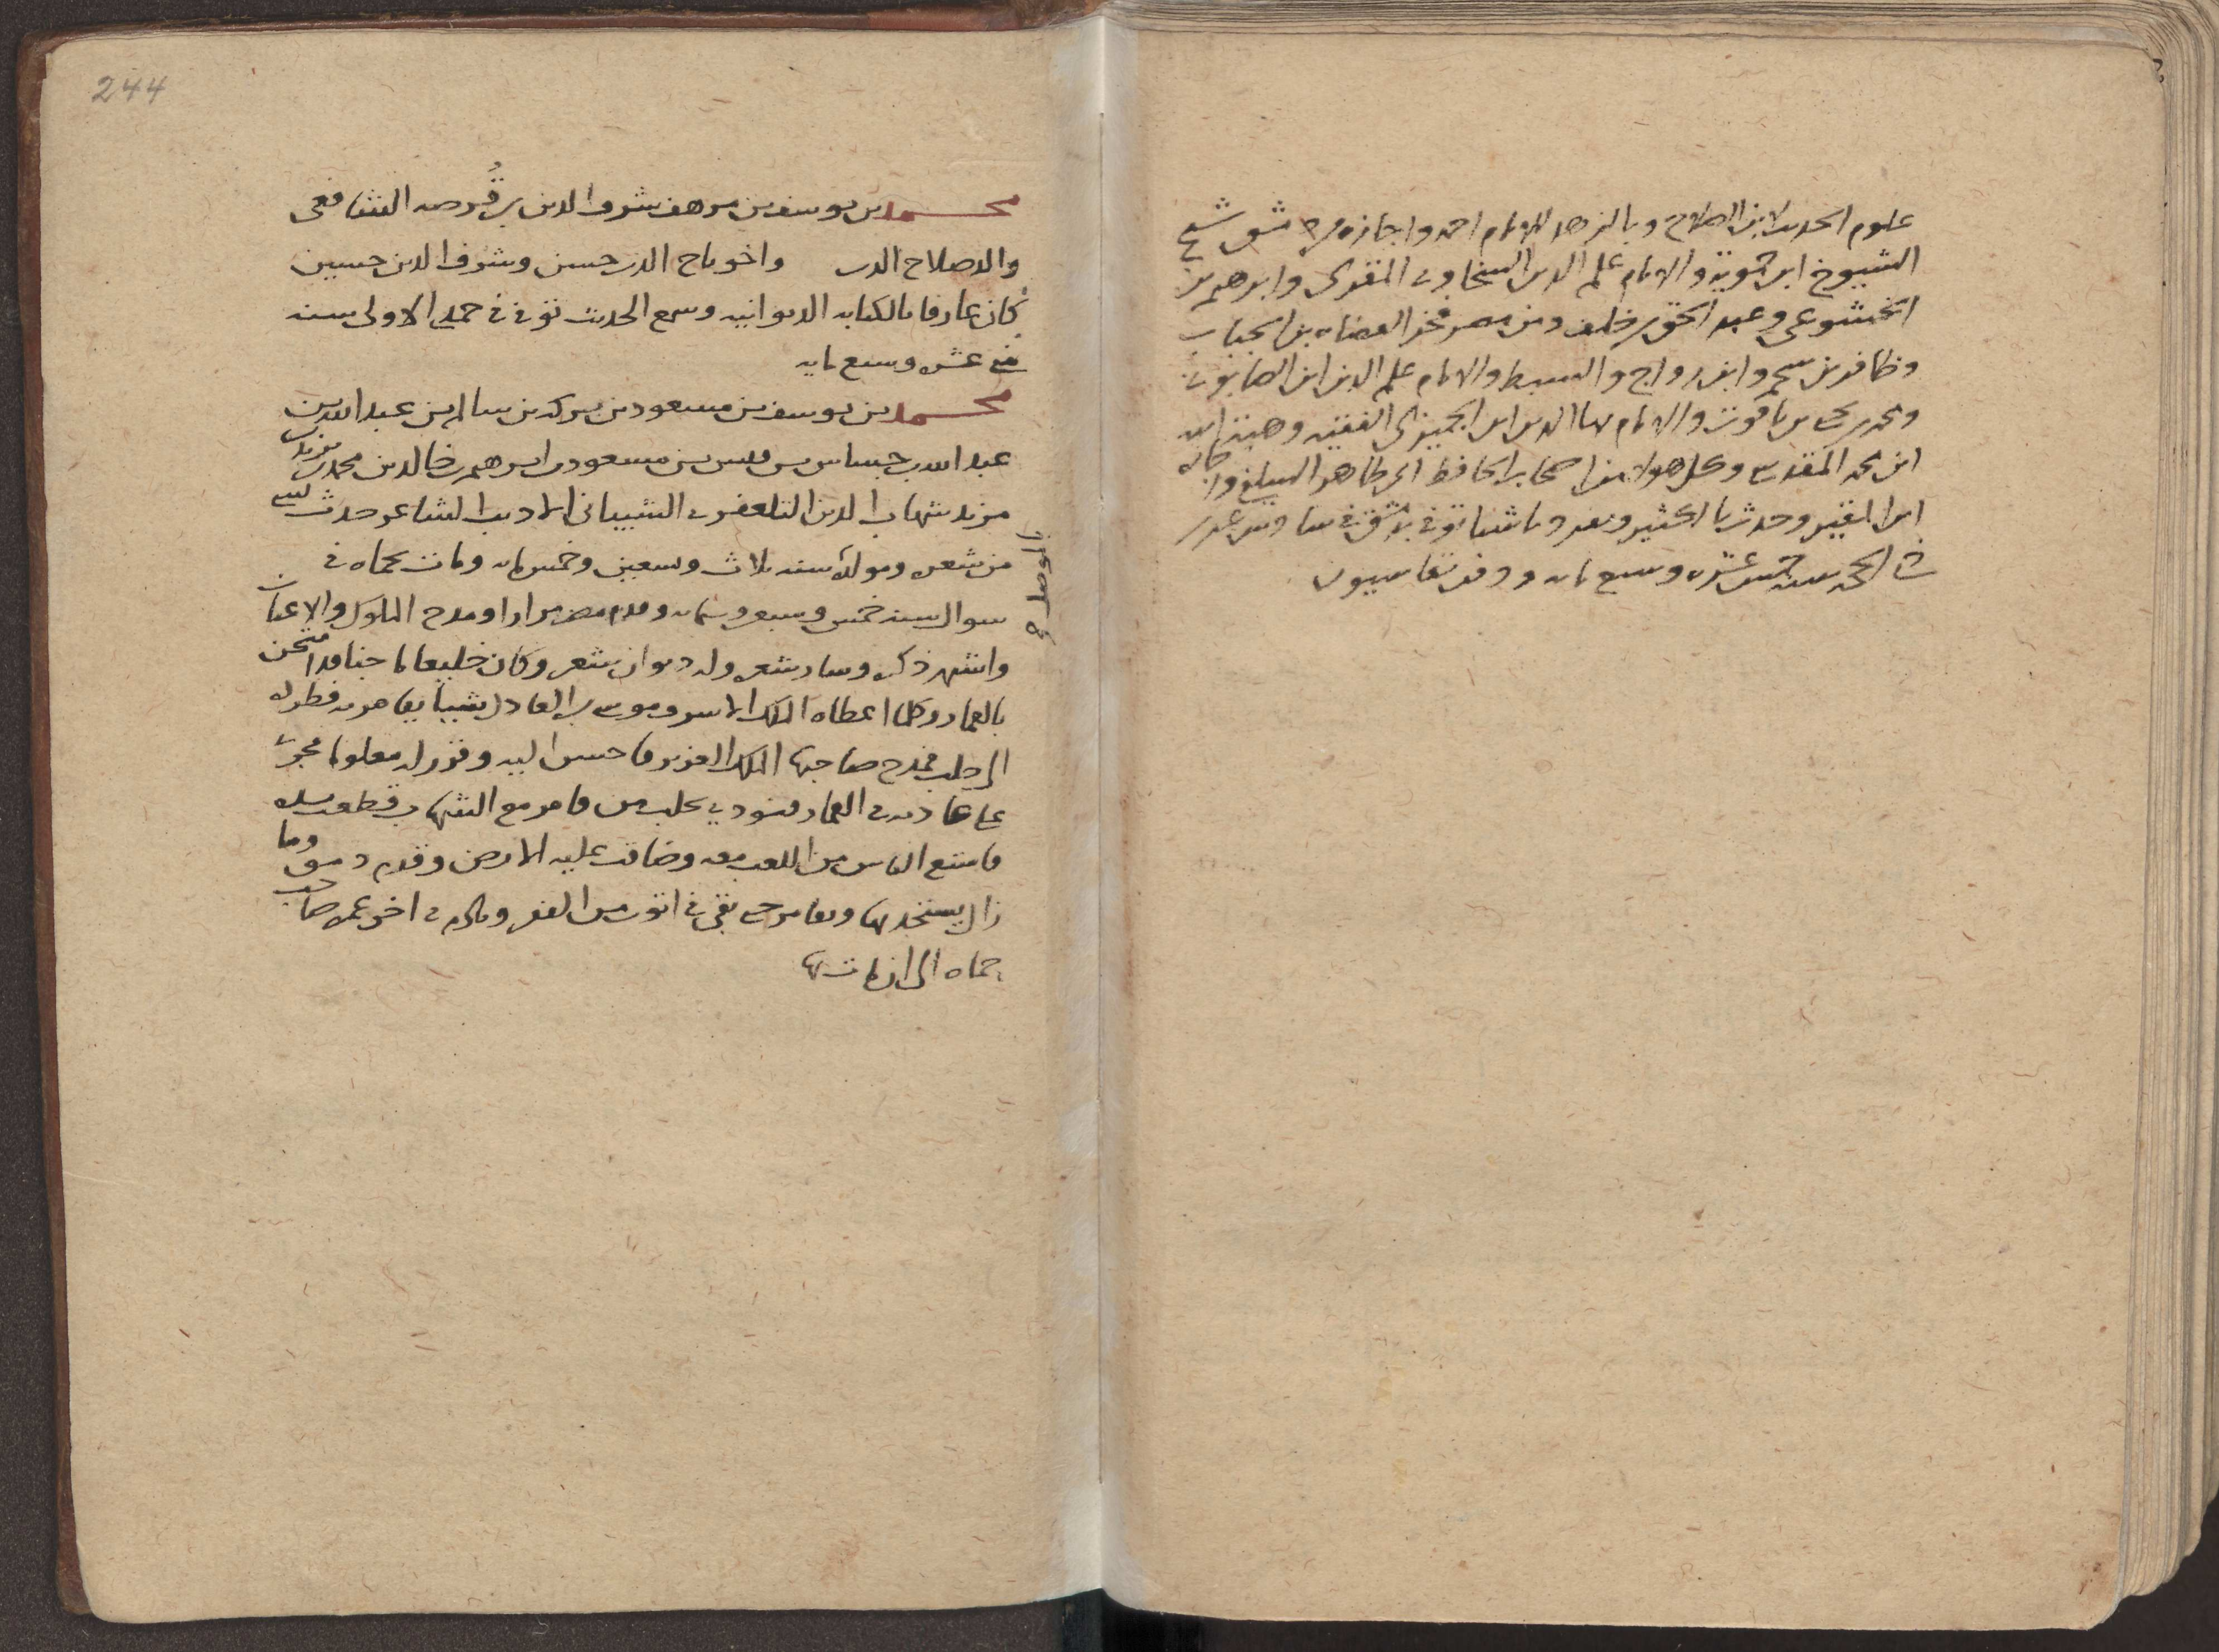 علوم الحديث لابن الصلاح وبالزهد للامام احمد واجازه من دمشق شيخ
الشيوخ ابن حمويه والامام علم الدين السخاوى المقرى وابرهيم بن
الخشوعى وعبد الحق بن خلف ومن مصر فخر القضاه بن الجباب
وظافر بن سحم وابن رواج والسبط والامام علم الدين ابن الصابونى
ومحمد بن يحيى بن ياقوت والامام بها الدين ابن الجميزى الفقيه وهبة الله
ابن محمد المقدسى وكل هولا من اصحاب الحافظ ابى طاهر السلفى واجازه
ابن المقير وحدث بالكثير وتفرد باشيا توفى بدمشق فى سادس عشر
ذى الحجه سنه خمس عشره وسبع مايه ودفن بقاسيون
244
محمد بن يوسف بن مرهف شرف الدين بن قُرصه الشافعى
والد صلاح الدين واخو تاج الدين حسن وشرف الدين حسين
كان عارفا بالكتابه الديوانيه وسمع الحديث توفى فى جمدى الاولى سنه
عشره وسبع مايه
محمد بن يوسف بن مسعود بن بركه بن سالم بن عبد الله بن
عبد الله بن جساس بن قيس بن مسعود بن ابرهيم بن خالد بن محمد بن يزيد بن
مزيد شهاب الدين التلعفرى الشيبانى الاديب الشاعر حدث بشى
من شعره ومولده سنه ثلاث وتسعين وخمس مايه ومات بحماه فى
شوال سنه خمس وسبعين وستمايه وقدم مصر مرارا ومدح الملوك والاعيان
واشتهر ذكره وسار شعره وله ديوان شعر وكان خليعا ماجنا قد امتحن
بالقمار وكلما اعطاه الملك الاشرف موسى بن العادل شيا يقامر به فطرده
الى حلب فمدح صاحبها الملك العزيز فاحسن اليه وقرر له معلوما فجرى
على عادته فى القمار فنودى بحلب من قامر مع الشهاب قطعت يده
فامتنع الناس من اللعب معه وضاقت عليه الارض وقدم دمشق وما
زال يستجدى بها ويقامر حتى بقى فى اتون من الفقر ونادم فى اخر عمره صاحب
حماه الى ان مات بها